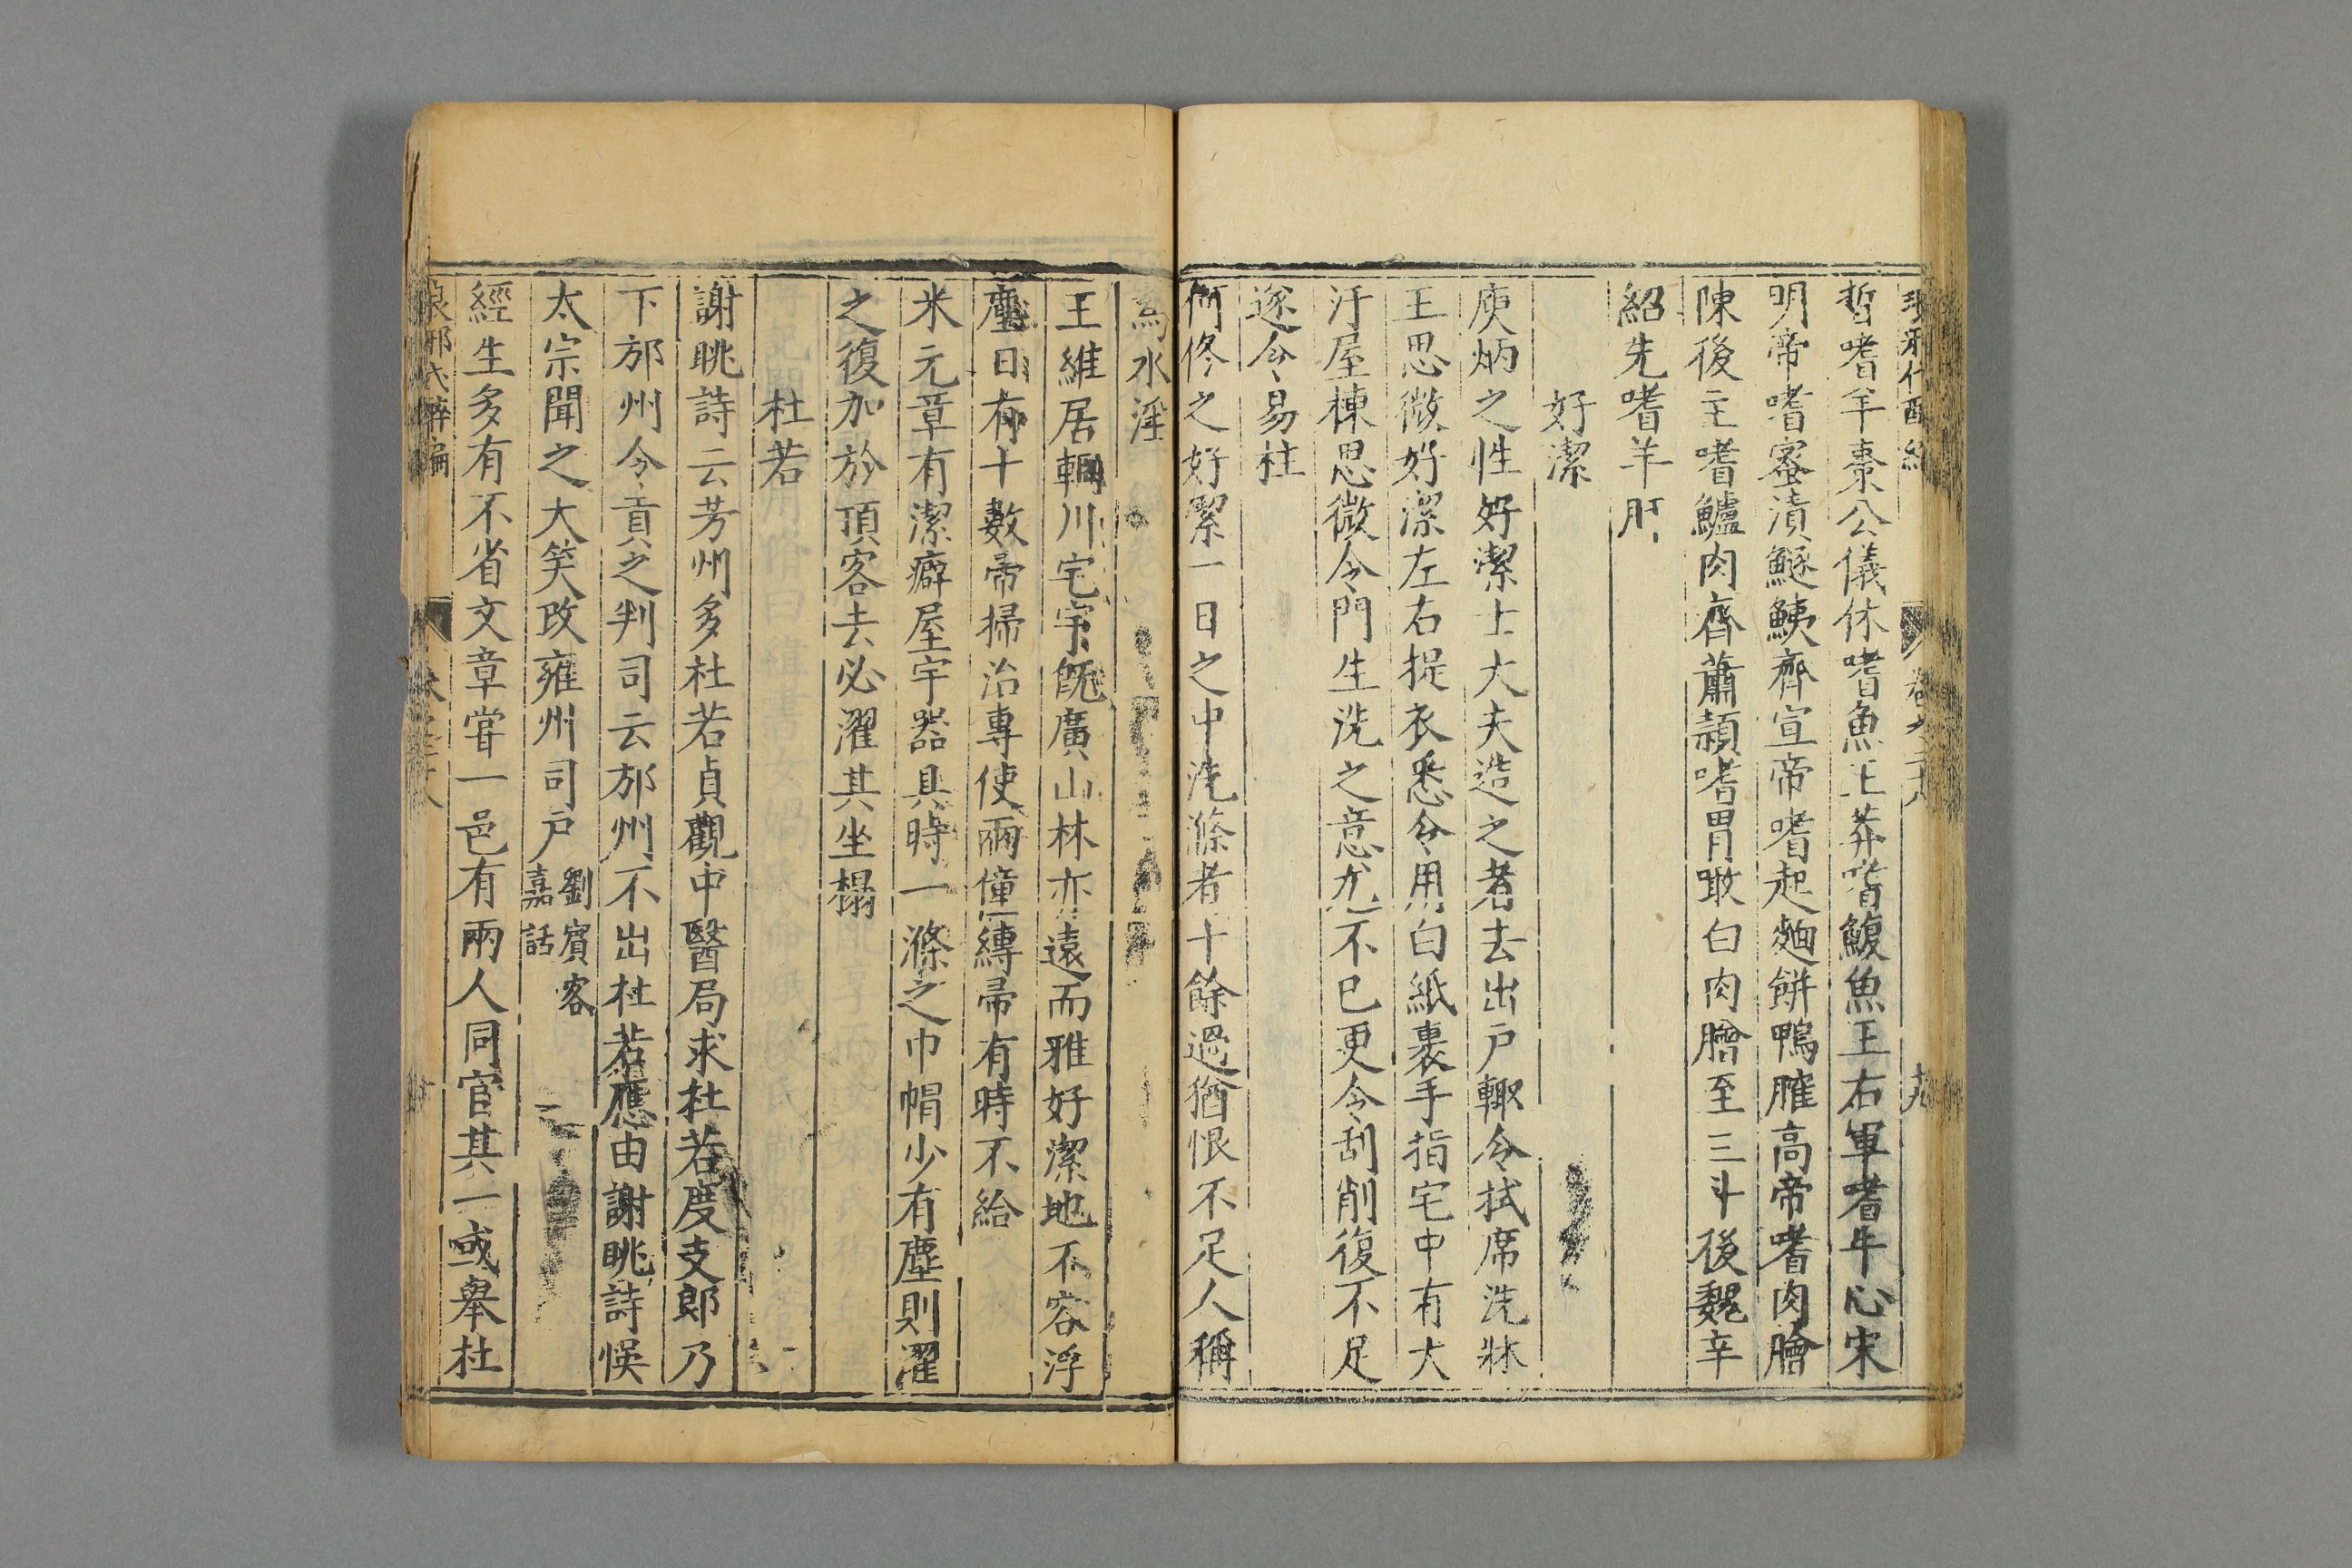 哲嗜羊棗公儀休嗜魚王莽嗜鰒魚王右軍嗜牛心宋
明帝嗜蜜漬鱁鮧齊宣帝嗜起麵餅鴨臛高帝嗜肉膾
陳後主嗜鱸肉齊蕭頴嗜胃噉白肉膾至三斗後魏辛
紹先嗜羊肝
好潔
庾炳之性好潔士大夫造之者去出戶輙令拭席洗牀
王思微好潔左右提衣悉令用白紙裹手指宅中有犬
汙屋棟思微令門生洗之意尤不已更令刮削復不足
遂令易柱
何佟之好潔一日之中洗滌者十餘過猶恨不足人稱
為水淫
王維居輞川宅宇既廣山林亦遠而雅好潔地不容浮
塵日有十數帚掃治專使兩僮縛帚有時不給
米元章有潔癖屋宇器具時一滌之巾帽少有塵則濯
之復加於頂客去必濯其坐榻
杜若
謝眺詩云芳州多杜若貞觀中醫局求杜若度支郎乃
下邡州令貢之判司云邡州不出杜若應由謝眺詩悞
太宗聞之大笑改雍州司戶劉賓客嘉話
經生多有不省文章甞一邑有兩人同官其一或舉杜